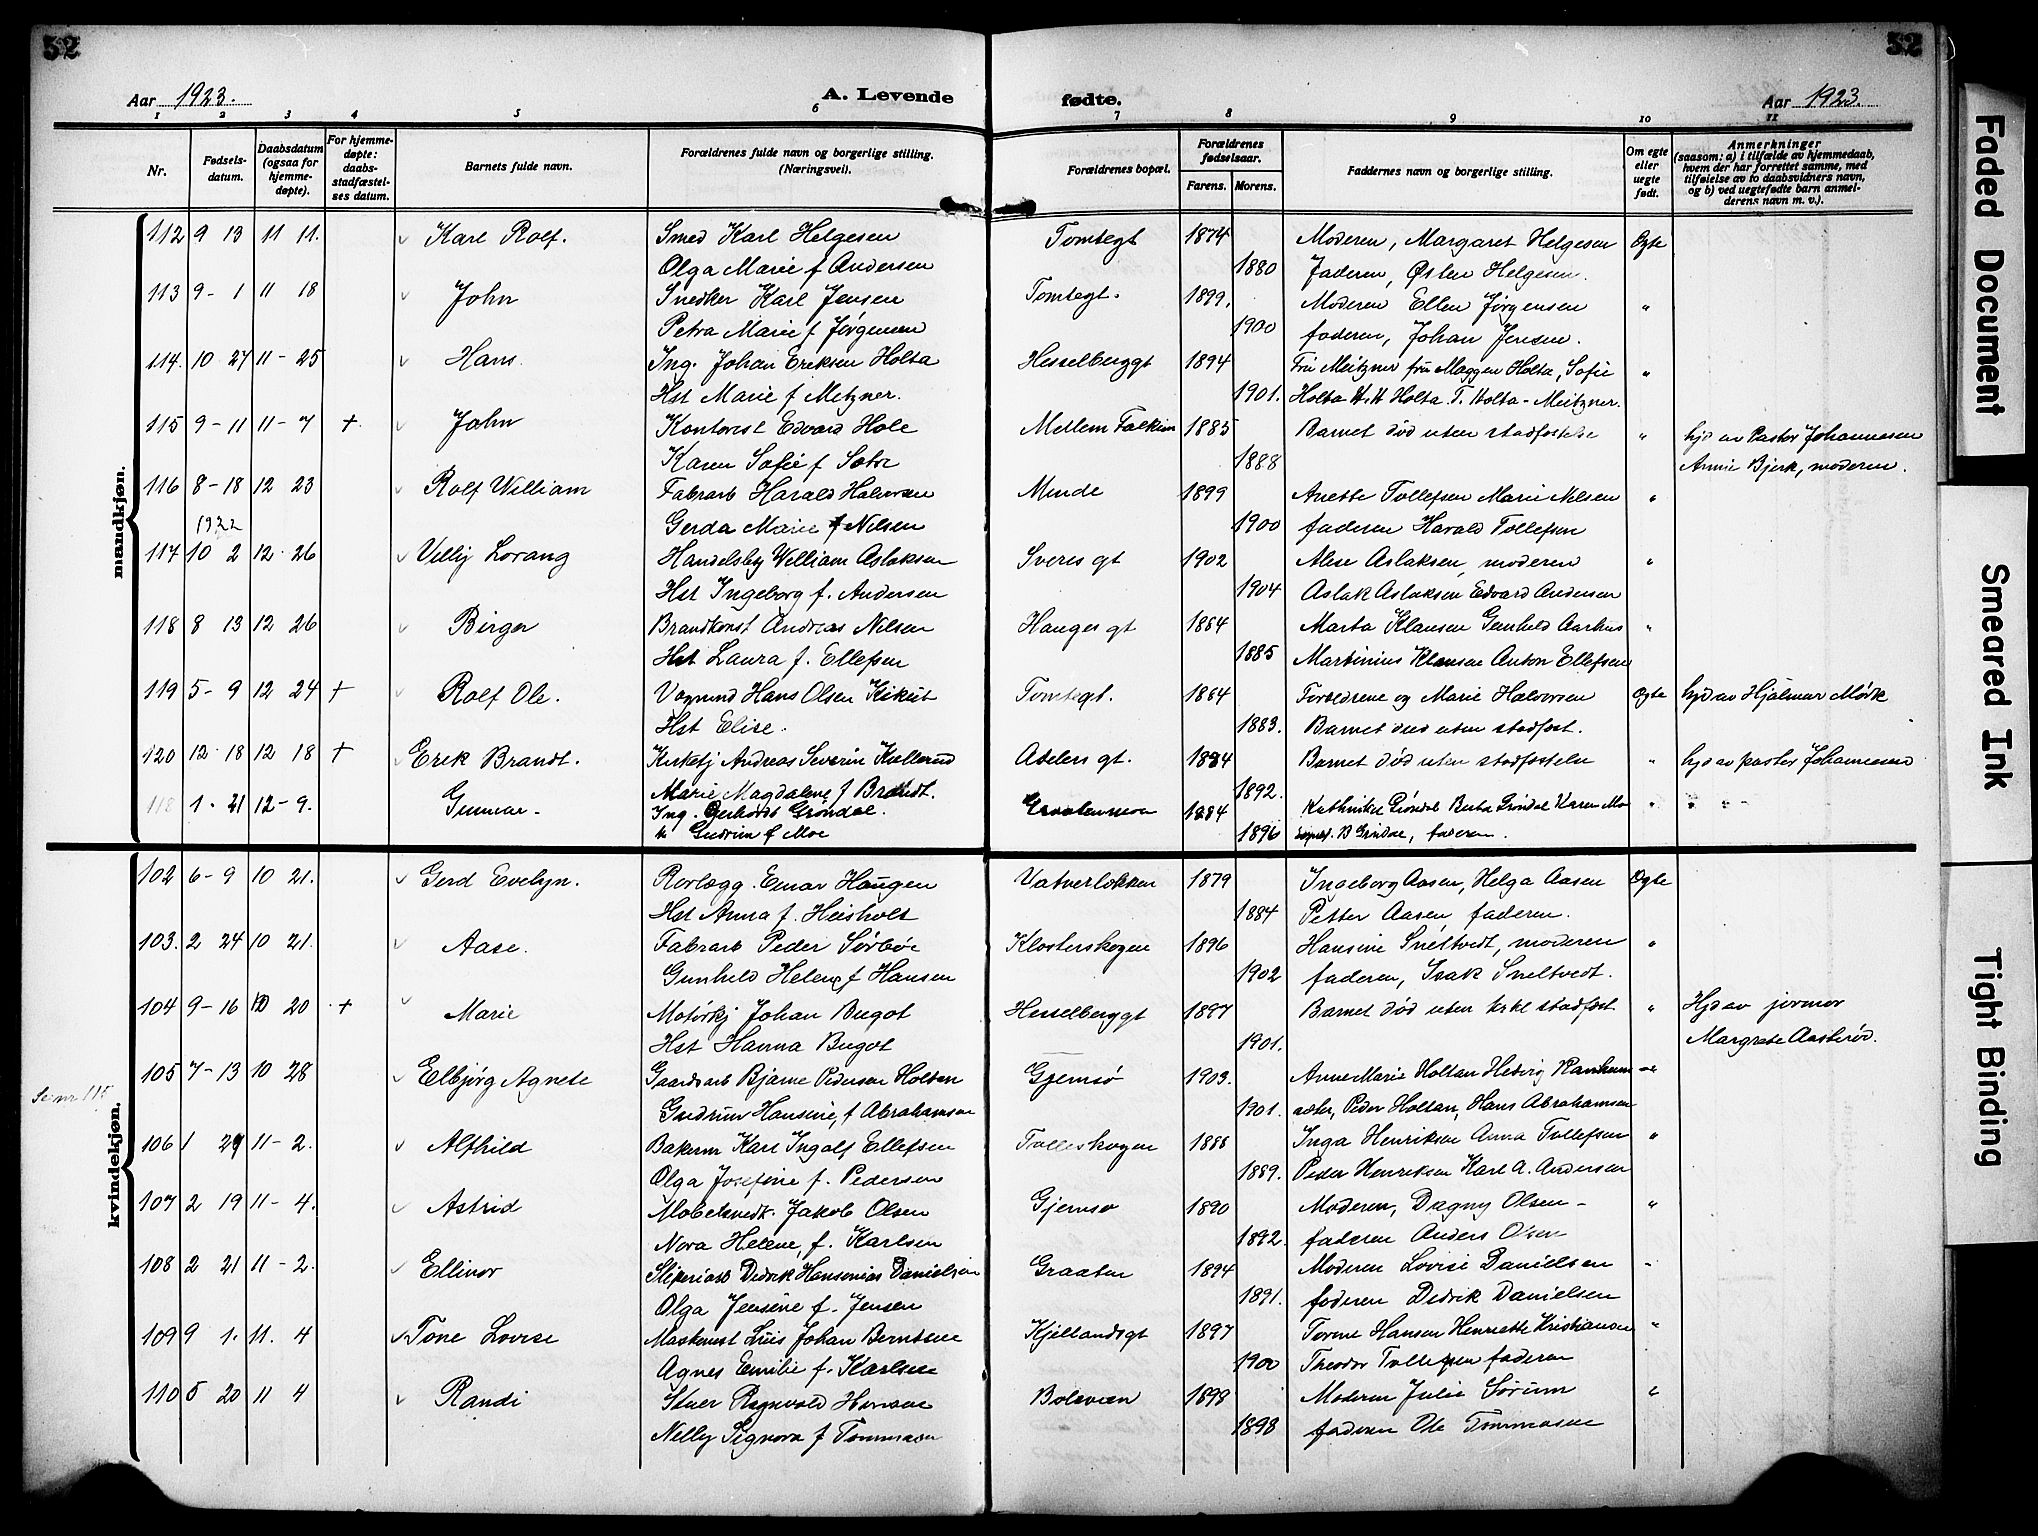 52
52
Aar 1923.
A. Levende
fødte.
Aar 1923.
1 2 3 4 5 6 7 8 9 10 11
Nr.
Fødsels-
datum.
Daabsdatum
(ogsaa for
hjemme-
døpte).
For hjemme-
døpte:
daabs-
stadfæstel-
ses datum.
Barnets fulde navn.
Forældrenes fulde navn og borgerlige stilling.
(Næringsvei).
Forældrenes bopæl.
Forældrenes
fødselsaar.
Farens. Morens.
Faddernes navn og borgerlige stilling.
Om egte
eller
uegte
født.
Anmerkninger
(saasom: a) i tilfælde av hjemmedaab,
hvem der har forrettet samme, med
tilføielse av to daabsvidners navn,
og b) ved uegtefødte barn anmel-
derens navn m. v.).
mandkjøn.
112 9 13 11 11. Karl Rolf. Smed Karl Helgesen Tomtegt 1874 Moderen, Margaret Helgesen Egte
Olga Marie f Andersen 1880 Faderen, Østen Helgesen.
113 9- 1 11 18 John Snedker Karl Jensen Tomtegt. 1899. Moderen Ellen Jørgensen "
Petra Marie f Jørgensen 1900 faderen, Johan Jensen.
114. 10 27 11- 25 Hans. Ing. Johan Eriksen Holta Hesselberggt 1894 Fru Meitzner fru Maggen Holta, Sofie "
Hst Marie f Metzner. 1901. Holta H. H Holta. T. Holta-Meitzner.
115 9- 11 11- 7 + John Kontorist Edvard Hole Mellem Falkum 1885 Barnet død uten stadfestelse " hjd av Pastor Johannesen
Karen Sofie f 1888 Annie Bjerk, moderen.
116 8- 18 12 23 Rolf William Fabrarb Harald Halvorsen Minde 1899 Anette Tollefsen Marie Nilsen "
1922 Gerda Marie f Nilsen 1900 faderen Harald Tollefsen
117 10 2 12. 26 Villy Lorang Handelsby William Aslaksen Sveres gt 1902 Aslaksen, moderen "
Hst Ingeborg f. Andersen 1904 Aslak Aslaksen Edvard Andersen
118 8 13 12 26 Birger Brandkonst Andreas Nilsen Hauges gt 1884 Marta Klausen Gunhild Aarhus "
Hst Laura f. Ellefsen 1885 Martinius Klausen Anton Ellefsen
119 5- 9 12 24 + Rolf Ole. Vognmd Hans Olsen Kikut Tomtegt. 1884 Foreldrene og Marie Halvorsen Egte hjd av Hjalmar Mørk
Hst Elise. 1883. Barnet død uten stadfest.
120 12- 18 12 18 + Erik Brandt. Andreas Severin Adelers gt. 1884 Barnet død uten stadfestelse " hjd av pastor Johannesen
Marie Magdalene f Brandt. 1892.
118 1. 21 12- 9. Gunnar. Ing. Gerhardt Grøndal. Graatenmoen 1884 Kathrinke Grøndal Berta Grøndal Karen Moe " " "
" Gudrun f Moe 1896 B Grøndal, faderen.
kvindekjøn.
102 6- 9 10 21. Gerd Evelyn. Rørlægg. Einar Haugen Vatverløkken 1879 Ingeborg Aasen, Helga Aasen Egte
Hst Anna f. Heisholt 1884 Petter Aasen, faderen.
103. 2 24 10 21. Aase. Fabrarb Peder Sørbøe Klosterskogen 1896 Hansine Sneltvedt, moderen "
Gunhild Helene f Hansen 1902 faderen, Isak Sneltvedt.
104 9- 16 10 20 + Marie Motørkj Johan Bugot Hesselberggt 1897 Barnet død uten kirkl stadfest " Hjd av jormor
Hst Hanna Bugot 1901. Margrete Aasterød.
Se nr 115
105 7- 13 10 28 Elbjørg Agnete Gaardsarb Bjarne Pedersen Holtan Gjemsø 1903. Anne Marie Holtan Hedvig
Gudrun Hansine, f Abrahamsen 1901. Peder Holtan, Hans Abrahamsen
106 1 29 11- 2. Alfhild Bakerm Karl Ingolf Ellefsen Tolleskogen 1888 Inga Henriksen Anna Tollefsen "
Olga Josefine f. Pedersen 1889. Peder Henriksen Karl A. Andersen
107 2 19 11- 4. Astrid Møbelsnedk. Jakob Olsen Gjemsø 1890 Moderen, Dagny Olsen - "
Nora Helene, f. Karlsen 1892. faderen Anders Olsen
108 2 21 11- 2. Ellinor Sliperiarb Didrik Hansenius Danielsen Graaten 1894 Moderen Lovise Danielsen "
Olga Jensine f. Jensen 1891. faderen Didrik Danielsen
109 9 1. 11. 4 Tone Lovise Maskinist Luis Johan Berntsen Kjellandsgt 1897 Torine Hansen Henriette Kristiansen "
Agnes Emilie f. Karlsen 1900 Theodor Tollefsen faderen
110 5 20 11 4 Randi Stuer Ragnvald Hansen Bolevæien 1898 Moderen Julie Sørum "
Nelly Signora f Tommasen 1898 faderen Ole Tommasen
Faded Document
Smeared Ink
Tight Binding